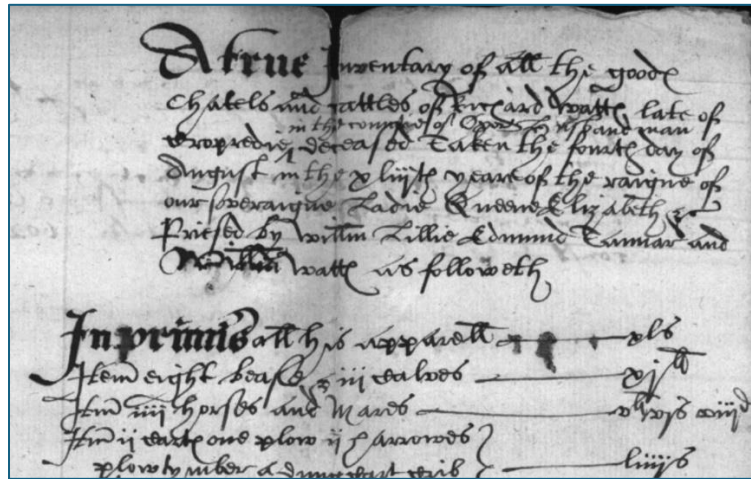 A true Inventary of all the goodes
Chatels and cattles of Richard Wattes late of
in the countie of Oxon husband man
Cropredie deceased Taken the fourth day of
August in the xliiijth yeare of the raigne of
our soveraigne Ladie Queene Elizabeth &c
Prised by Willm Lillie Edmund and
Wattes as followeth
Inprimis all his apparell xls
Itm eight bease & iii calves xjli
Itm iiii horses and Mares
Itm ii cartes one plow ii harrowes
plow tymber a dung cart liiijs